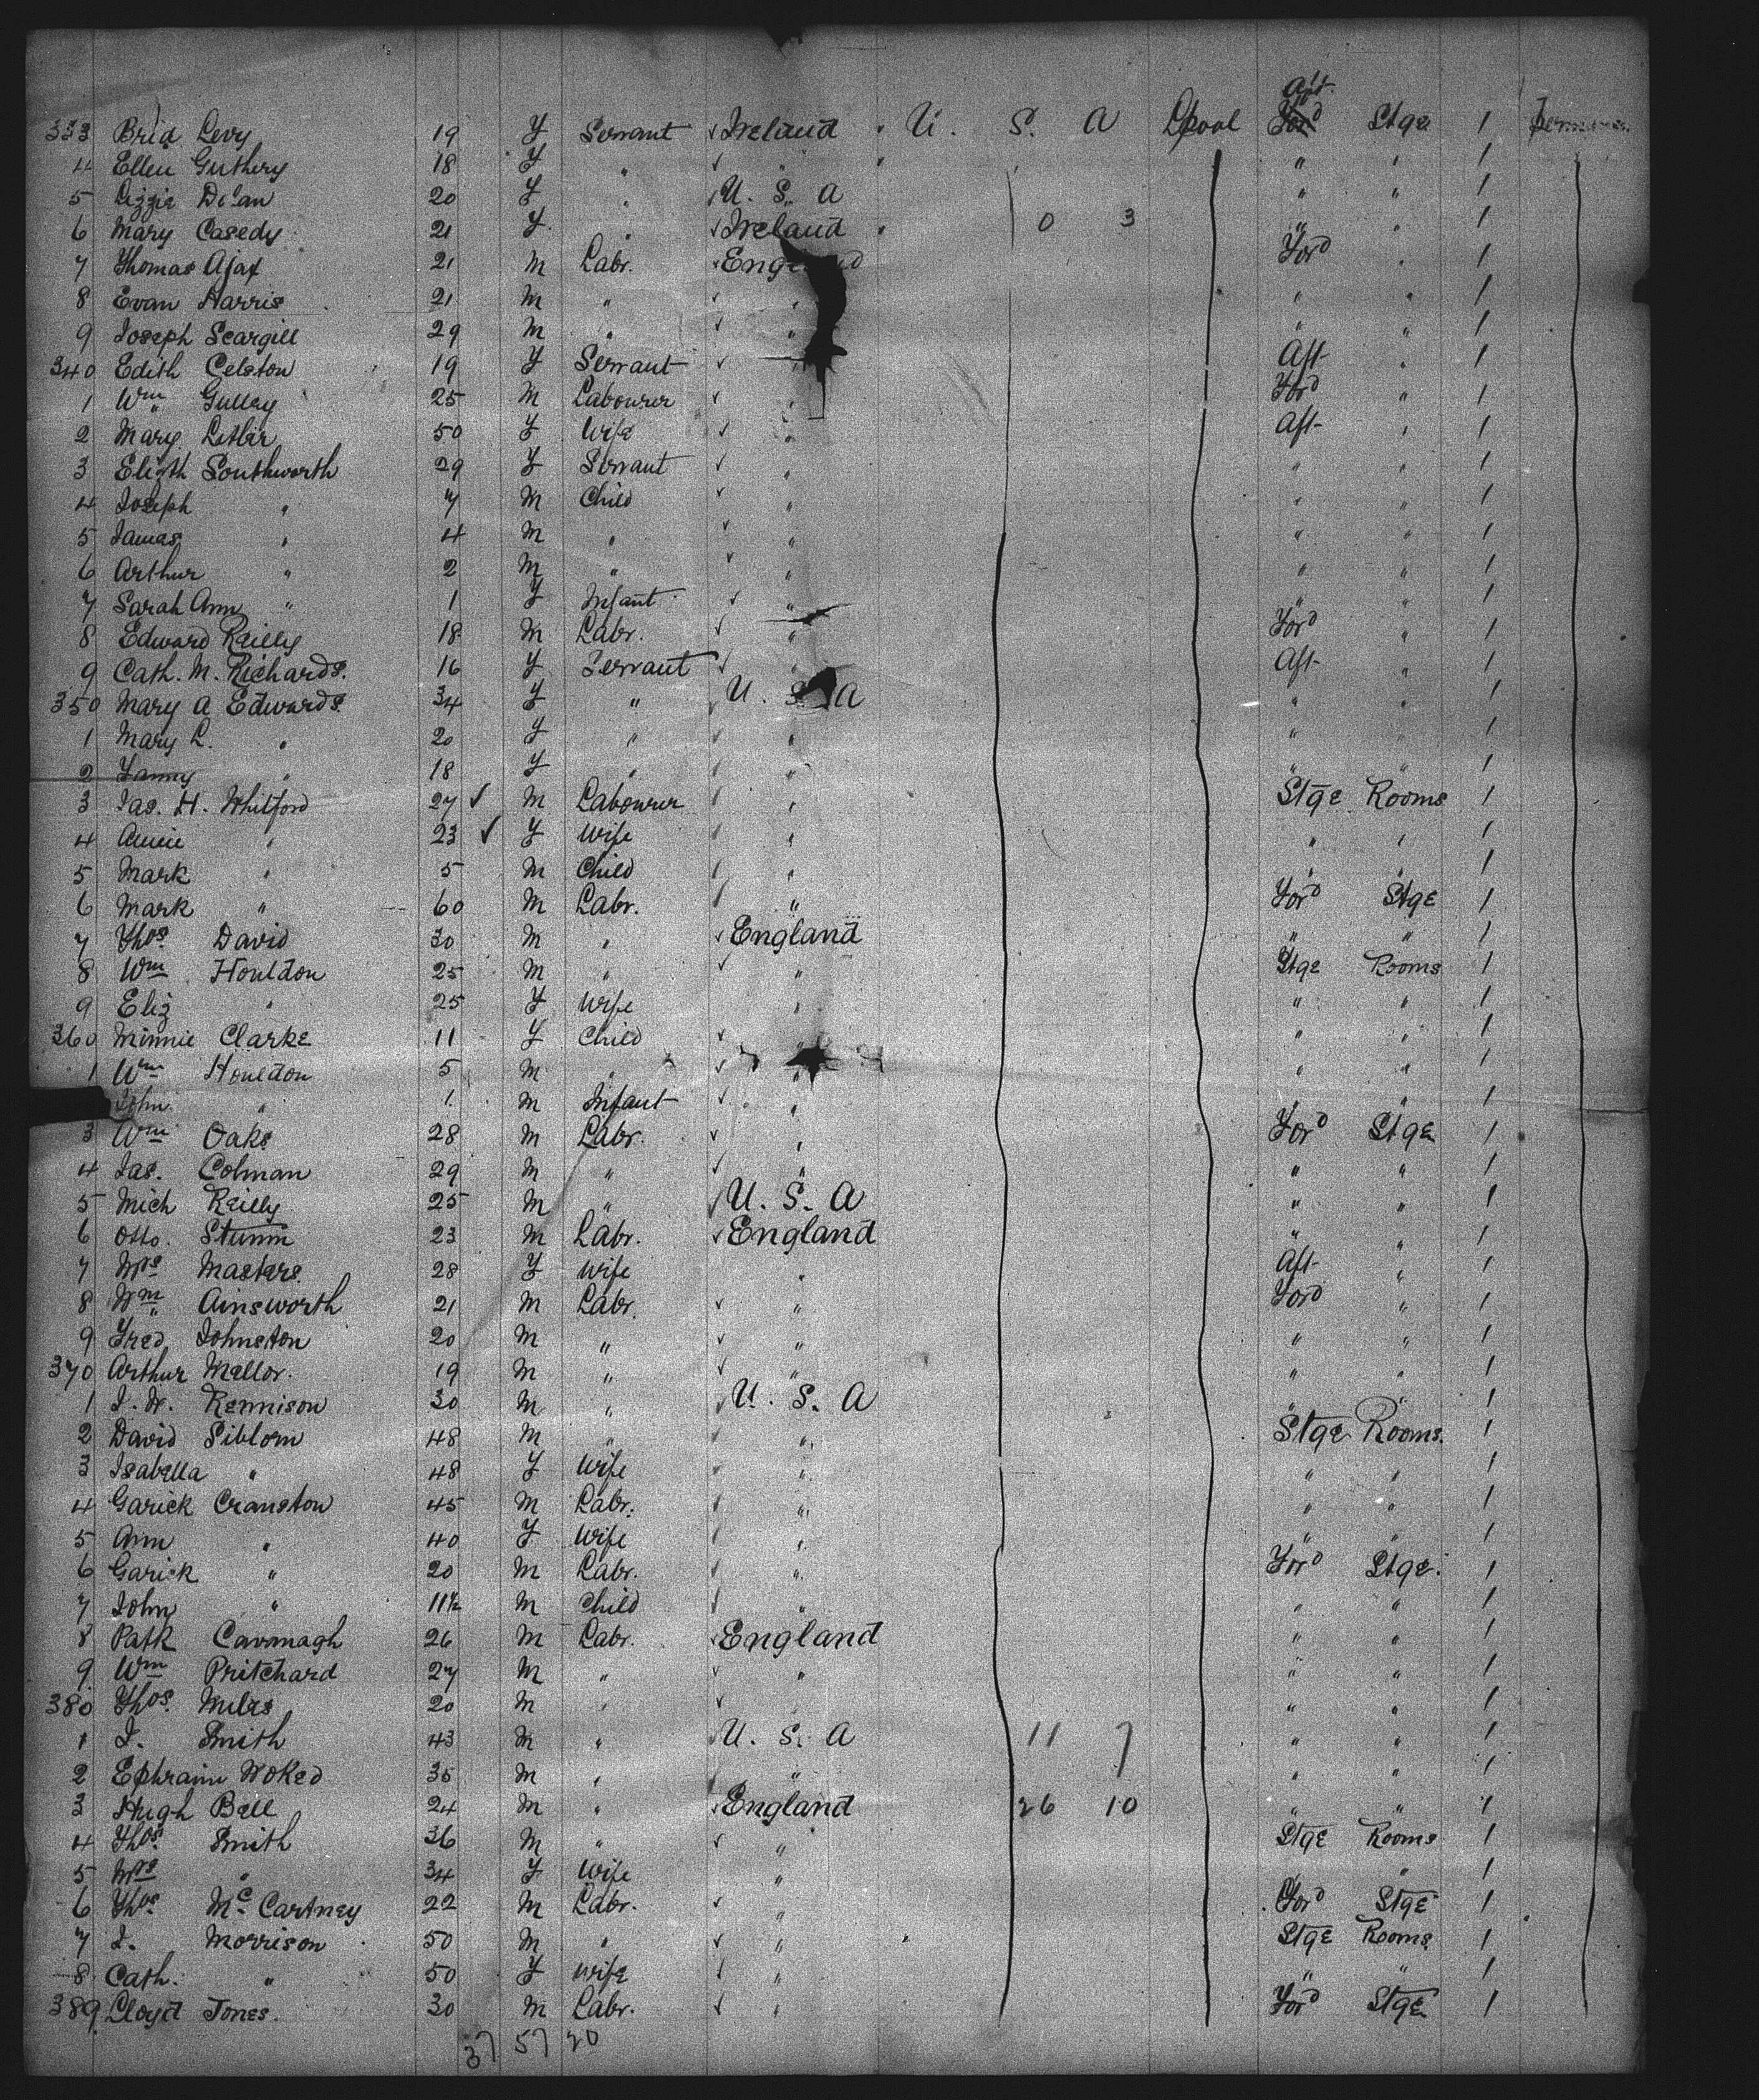 333 Brid Levy 19 F Servant ✓ Ireland " U. S. A L'pool Aft Stge 1
4 Ellen Guthery 18 F " ✓ " " " " 1
5 Lizzie 20 F " ✓ U. S. A " " 1
6 Mary Casedy 21 F " ✓ Ireland " 0 3 " " 1
7 Thomas Ajax 21 M Labr. ✓ England Ford " 1
8 Evan Harris 21 M " ✓ " " " 1
9 Joseph Scargill 29 M " ✓ " " " 1
340 Edith Celston 19 F Servant ✓ " Aft " 1
1 Wm Gulley 25 M Labourer ✓ " Ford " 1
2 Mary 50 F Wife ✓ " Aft " 1
3 Elizth Southworth 29 F Servant ✓ " " " 1
4 Joseph " 7 M Child ✓ " " " 1
5 James " 4 M " ✓ " " " 1
6 Arthur " 2 M " ✓ " " " 1
7 Sarah Ann " 1 F Infant ✓ " " " 1
8 Edward Reilly 18 M Labr. ✓ " Ford " 1
9 Cath. M. Richards. 16 F Servant ✓ " Aft " 1
350 Mary A Edwards. 34 F " ✓ U. S. A " " 1
1 Mary L. " 20 F " ✓ " " " 1
2 Fanny " 18 F " ✓ " " " 1
3 Jas. H. Whitford 27 ✓ M Labourer ✓ " Stge Rooms 1
4 Annie " 23 ✓ F Wife ✓ " " " 1
5 Mark " 5 M Child ✓ " " " 1
6 Mark " 60 M Labr. ✓ " Ford Stge 1
7 Thos. David 30 M " ✓ England " " 1
8 Wm Houldon 25 M " ✓ " Stge Rooms 1
9 Eliz " 25 F Wife " " " 1
360 Minnie Clarke 11 F Child ✓ " " " 1
1 Wm Houldon 5 M " ✓ " " " 1
John " 1 M Infant ✓ " " " 1
3 Wm Oaks 28 M Labr. ✓ " Ford Stge 1
4 Jas. Colman 29 M " ✓ " " " 1
5 Mich Reilly 25 M " ✓ U. S. A " " 1
6 Otto. Stumm 23 M Labr. ✓ England " " 1
7 Mrs Masters. 28 F Wife " Aft " 1
8 Wm Ainsworth 21 M Labr. ✓ " Ford " 1
9 Fred Johnston 20 M " ✓ " " " 1
370 Arthur Mellor. 19 M " ✓ " " " 1
1 J. W. Rennison 30 M " ✓ U. S. A " " 1
2 David Siblorn 48 M " ✓ " Stge Rooms. 1
3 Isabella " 48 F Wife ✓ " " " 1
4 Garick Cranston 45 M Labr. ✓ " " " 1
5 Ann " 40 F Wife ✓ " " " 1
6 Garick " 20 M Labr. ✓ " Ford Stge. 1
7 John " 11½ M Child ✓ " " " 1
8 Patk Cavanagh 26 M Labr. ✓ England " " 1
9 Wm Pritchard 27 M " ✓ " " " 1
380 Thos. Miles 20 M " ✓ " " 1
1 J. Smith 43 M " ✓ U. S. A 11 7 " " 1
2 Ephraim Woked 35 M " ✓ " " " 1
3 Hugh Ball 24 M " ✓ England 26 10 " " 1
4 Thos. Smith 36 M " ✓ " Stge Rooms 1
5 Mrs " 34 F Wife " " " 1
6 Thos Mc Cartney 22 M Labr. ✓ " Ford Stge 1
7 J. Morrison 50 M " ✓ " Stge Rooms. 1
8 Cath. " 50 F Wife ✓ " " " 1
389 Lloyd Jones. 30 M Labr. ✓ " Ford Stge 1
37 57 20